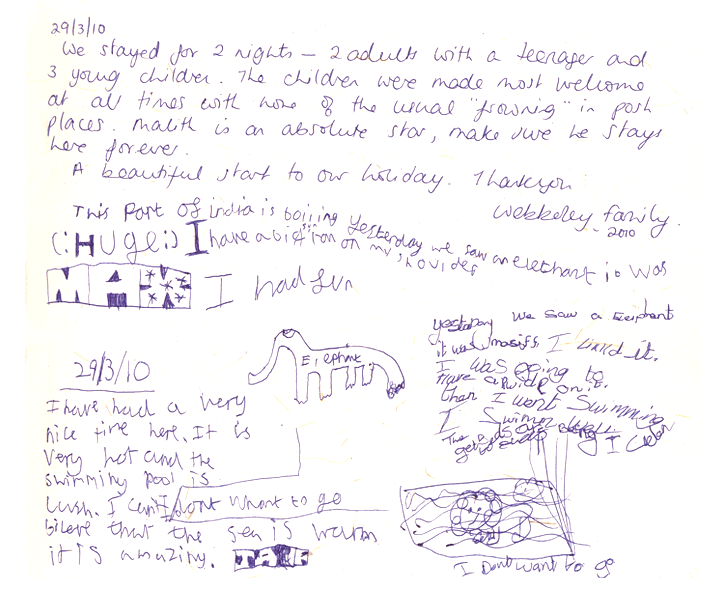 29/3/10
We stayed for 2 nights – 2 adults with a teenager and
3 young children. The children were made most welcome
at all times with none of the usual "frowning" in posh
places. Malith is an absolute star, make sure he stays
here forever.
A beautiful start to our holiday. Thankyou
family.
2010
This part of india is boiiring yesterday we saw an elethant it was
(:HUge:) I have a big on my shoulder
I had fun
yesterday We saw a
it was massif. I it.
I was going to
Have a ride on it.
than I went Swimming
I
The I
Elephant
29/3/10
I have had a very
nice time here. It is
very hot and the
swimming pool is
lush. I can't
I dont whant to go
bileve that the sea is warm
it is amazing.
I Dont want to go